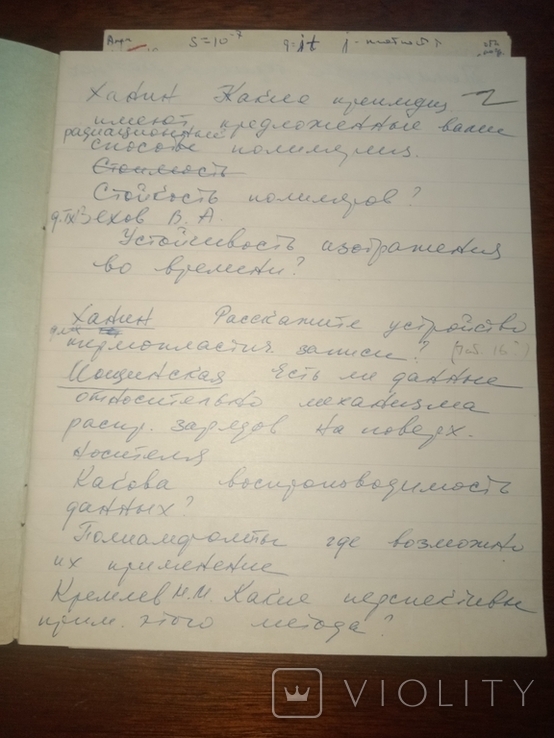 S=10⁻⁷ q=jt
Ханин Какие преимущ.
имеют предложенные вами
радиационный
способ полимериз.
Стоимость
Стойкость полимеров?
Зехов В. А.
Устойчивость изображения
во времени?
Ханин Расскажите устройство
термопластич. записи?
Кощинская Есть ли данные
относительно механизма
распр. зарядов на поверх.
носителя
Какова воспроизводимость
данных?
где возможно
их применение
Кремлев М.М. Какие перспективы
прим. этого метода?
VIOLITY